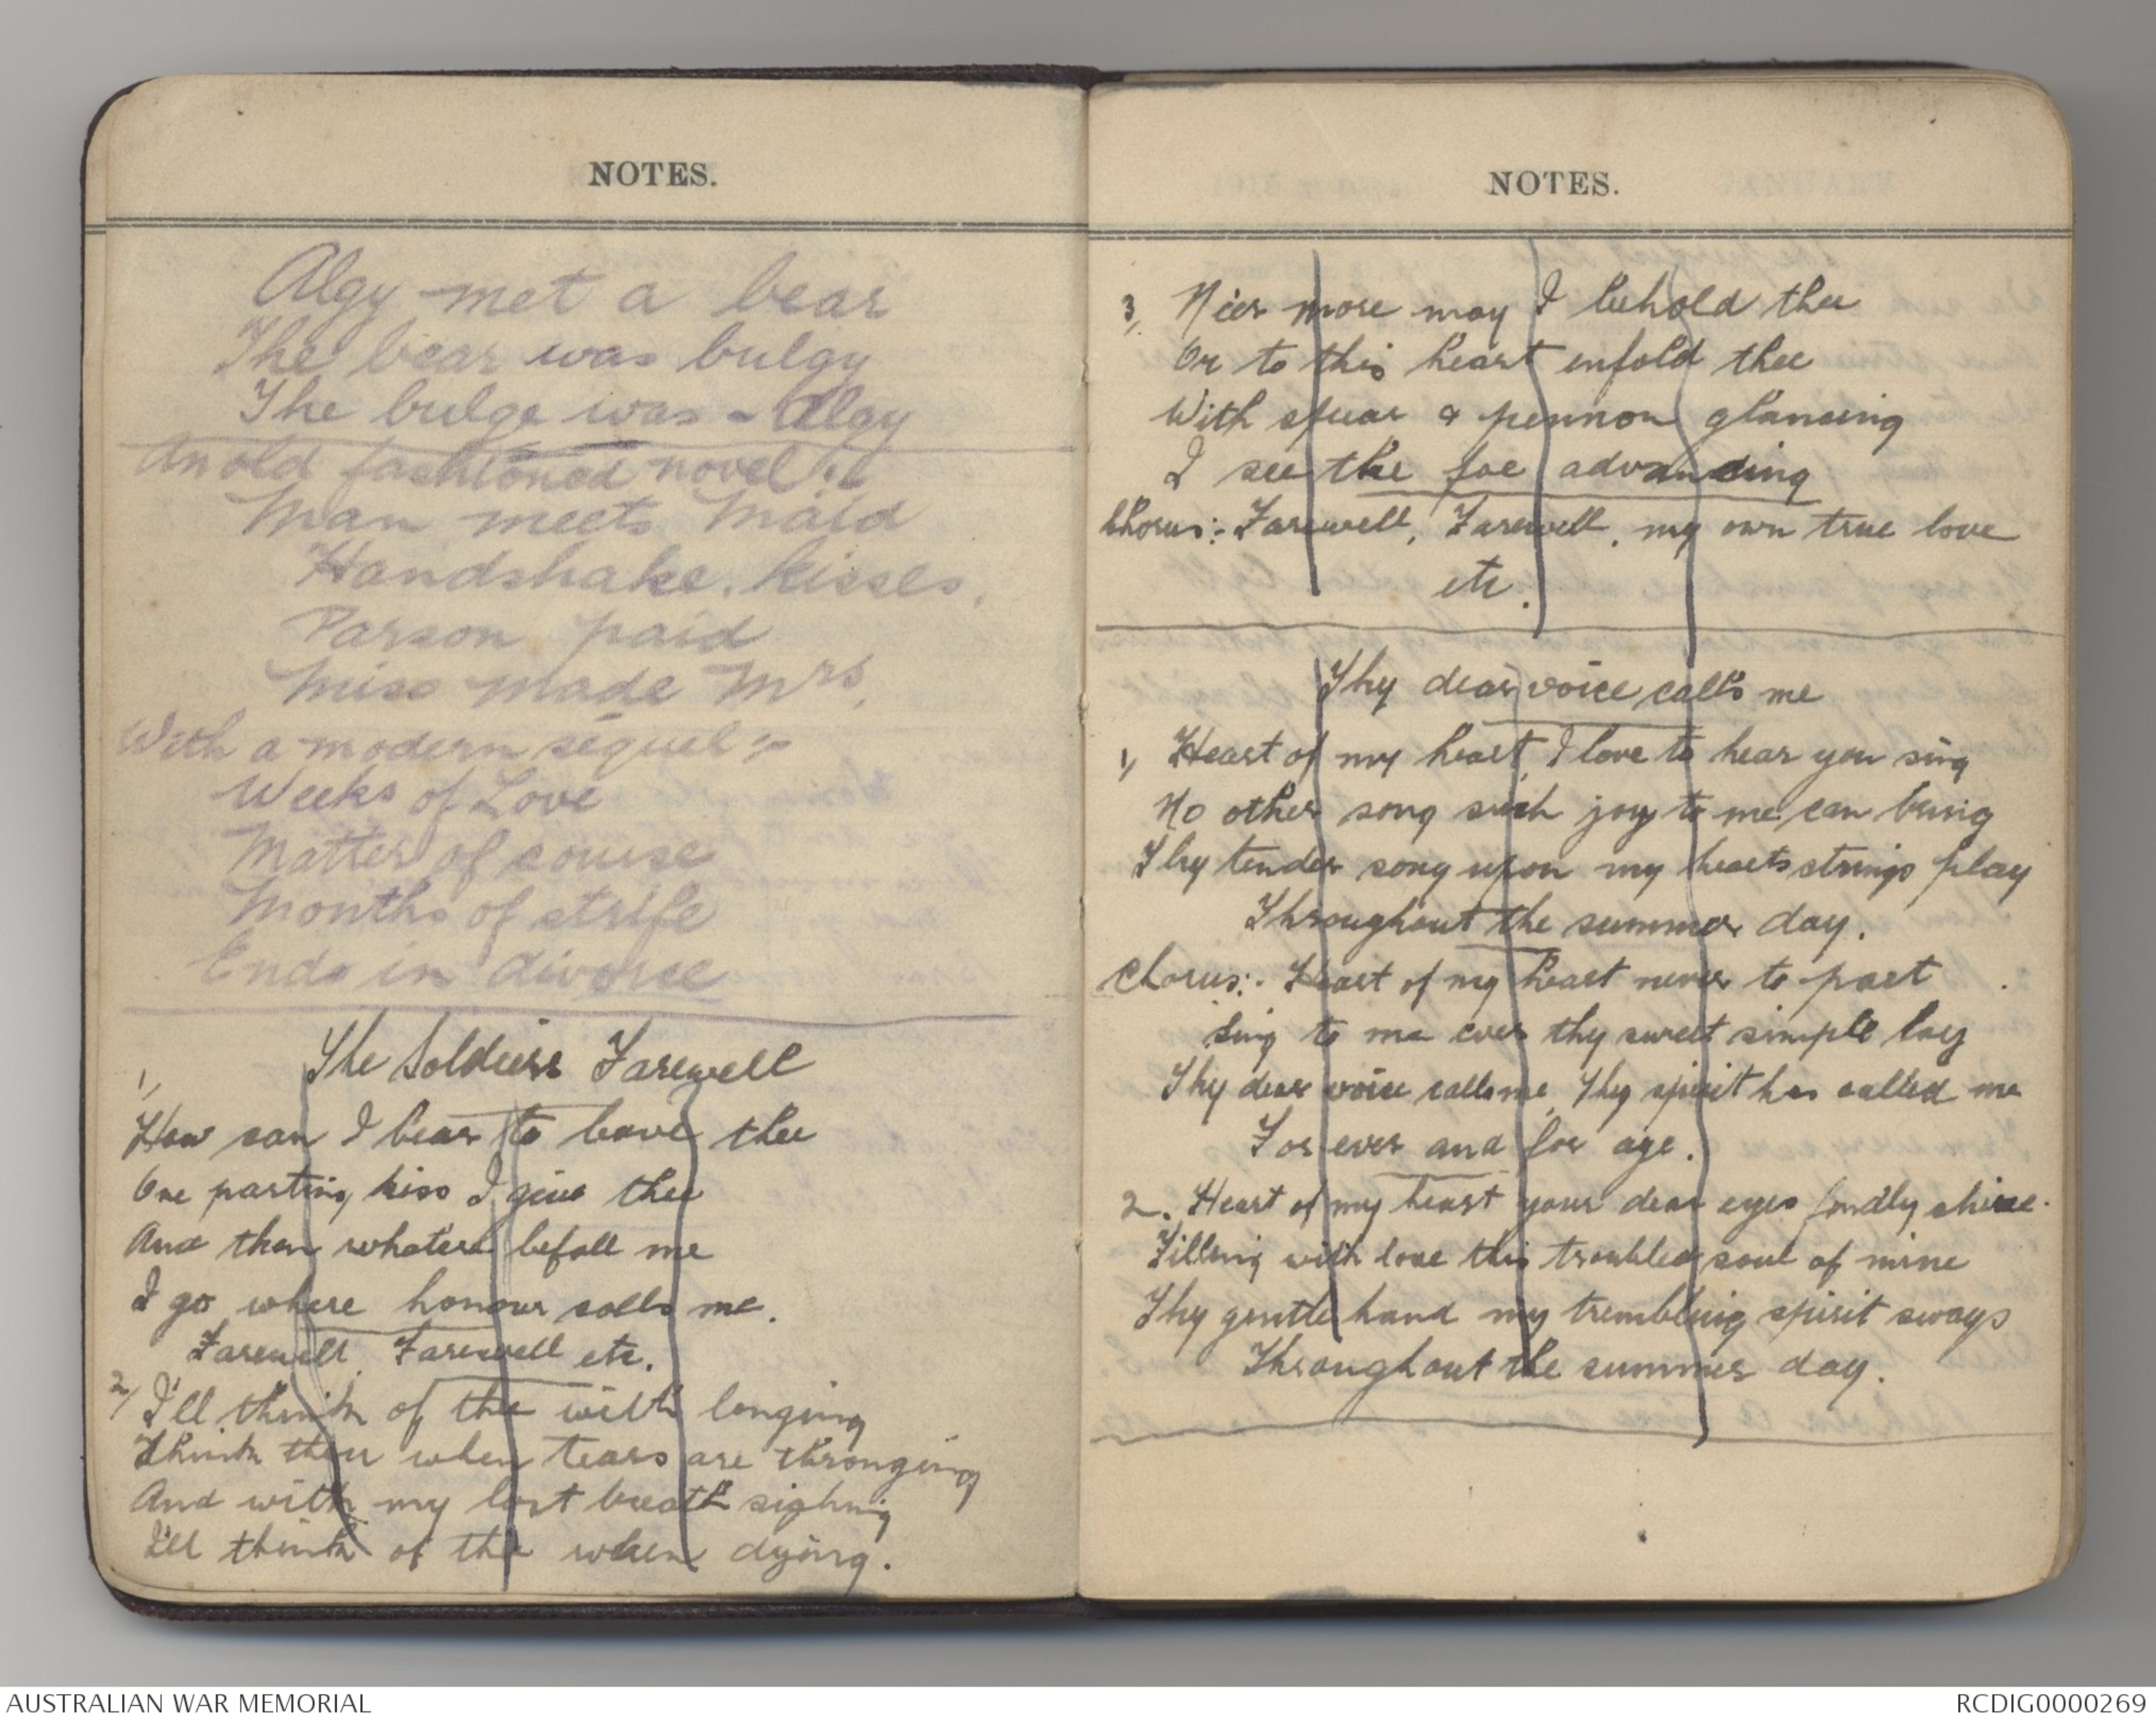 NOTES.
Algy met a bear
The bear was bulgy
The bulge was - Algy
An old fashioned novel:-
Man meets Maid
Handshake, kisses,
Parson paid
Miss made Mrs.
With a modern sequel:-
Weeks of Love
Matter of course
Months of strife
Ends in divorce
The Soldiers Farewell
1,
How can I bear to leave thee
One parting kiss I give thee
And then whatere befall me
I go where honour calls me.
Farewell, Farewell etc.
2, I'll think of thee with longing
Think thou when tears are thronging
And with my last breath sighing
I'll think of the when dying.
NOTES.
3, Neer more may I behold thee
Or to this heart enfold thee
With spear & pennon glancing
I see the foe advancing
Chorus:- Farewell, Farewell, my own true love
etc.
Thy dear voice calls me
1, Heart of my heart, I love to hear you sing
No other song such joy to me can bring
Thy tender song upon my hearts strings play
Throughout the summer day.
Chorus:- Heart of my heart never to part
Sing to me ever thy sweet simple lay
Thy dear voice calls me, Thy spirit has called me
For ever and for aye.
2. Heart of my heart your dear eyes fondly shine.
Filling with love this troubled soul of mine
Thy gentle hand my trembling spirit sways
Throughout the summer day.
AUSTRALIAN WAR MEMORIAL
RCDIG0000269